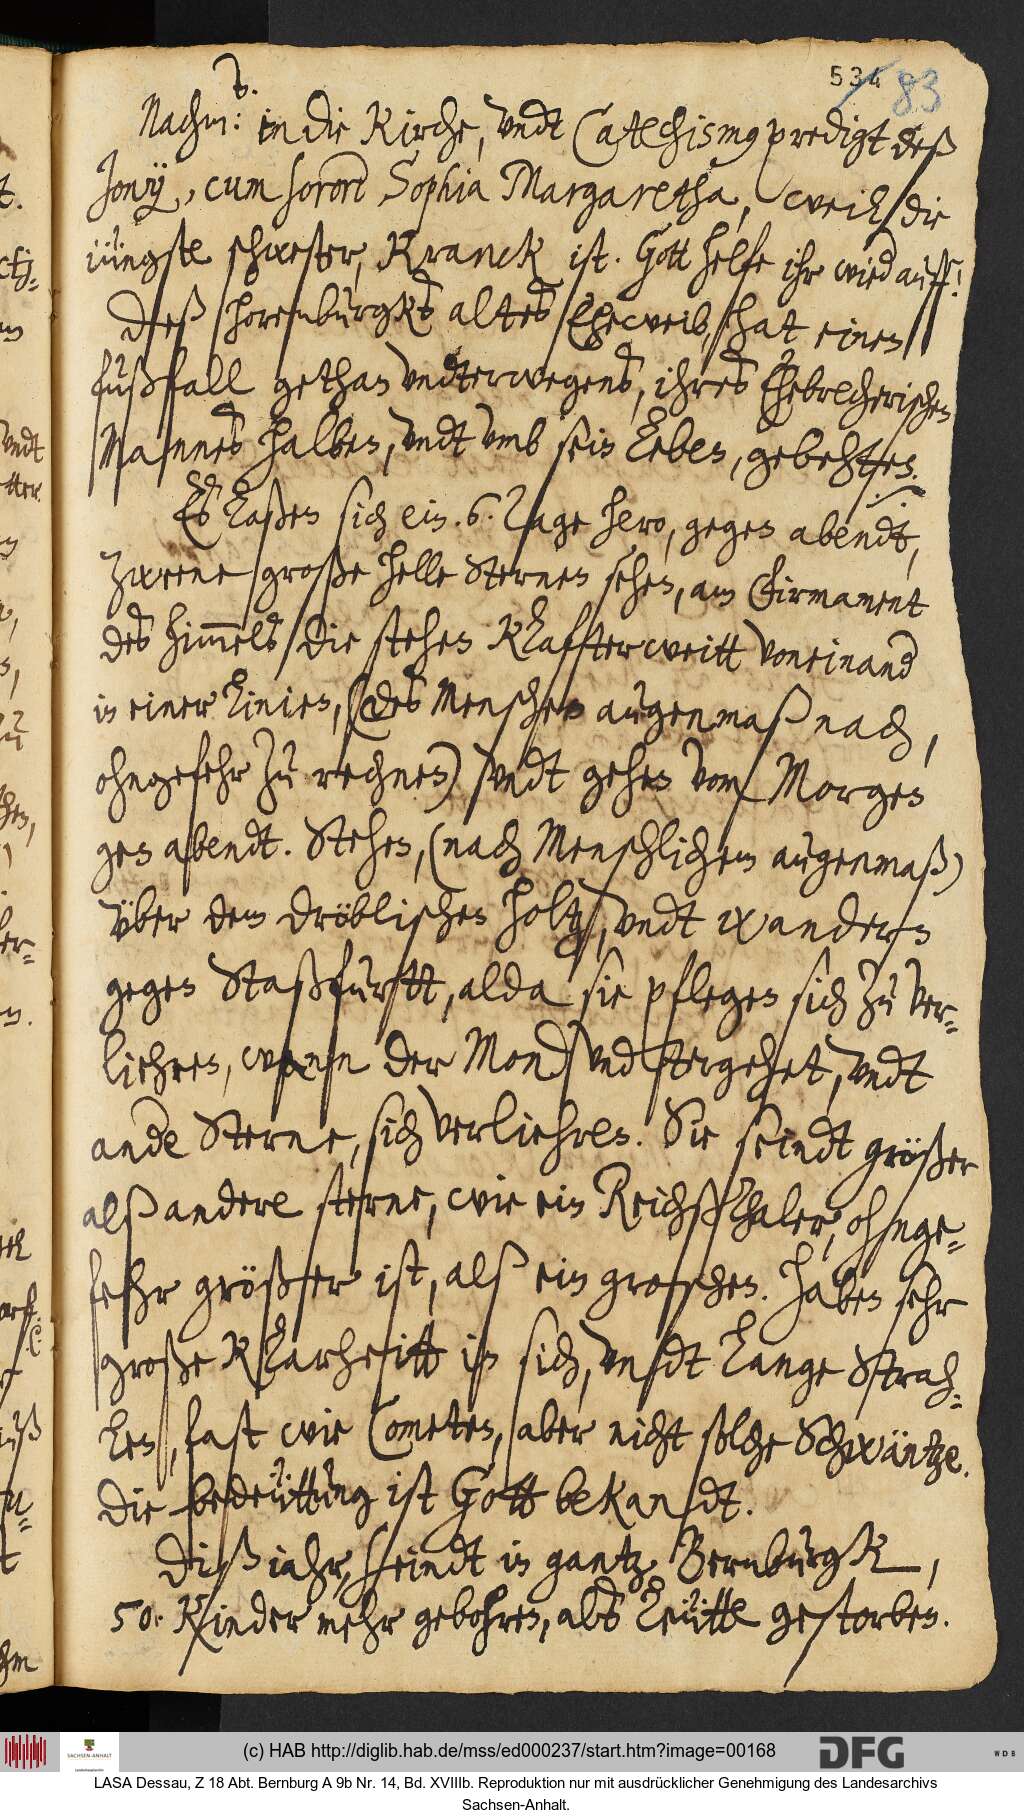 534 83
Nachm: in die Kirche, vndt Catechismuspredigt deß
Jonij, cum sorore Sophia Margaretha, weil die
iüngste schwester, Kranck ist. Gott helfe ihr wied auff!
Deß horenburgks altes Eheweib, hat einen
fußfall gethan vndterwegens, ihres Ehebrecherischen
Mannes halben, vndt vmb sein Leben, gebehten.
Es Laßen sich ein .6. Tage hero, gegen abendt,
zweene große helle Sternen sehen, am Firmament
des himels, Die stehen Klaffter weitt voneinand
in einer Linien, (des Menschen augenmaß nach,
ohngefehr zu rechnen) vndt gehen vom Morgen
gen abendt. Stehen, (nach Menschlichem augenmaß)
vber dem dröblischen holtz, vndt wandern
gegen Staßfurtt, alda sie pflegen sich zu ver-
liehren, wenn der Mond vndtergehet, vndt
ande Sterne, sich verliehren. Sie seindt größer
alß andere sterne, wie ein Reichßthaler, ohnge-
fehr größer ist, alß ein groschen. Haben sehr
große Klarheitt in sich, vndt Lange Strah-
len, fast wie Cometen, aber nicht solche Schwäntze.
Die bedeüttung ist Gott bekandt.
Diß iahr, seindt in gantz Bernburgk,
50. Kinder mehr gebohren, als Leütte gestorben.
(c) HAB http://diglib.hab.de/mss/ed000237/start.htm?image=00168
SACHSEN-ANHALT
DFG
WDB
LASA Dessau, Z 18 Abt. Bernburg A 9b Nr. 14, Bd. XVIIIb. Reproduktion nur mit ausdrücklicher Genehmigung des Landesarchivs
Sachsen-Anhalt.